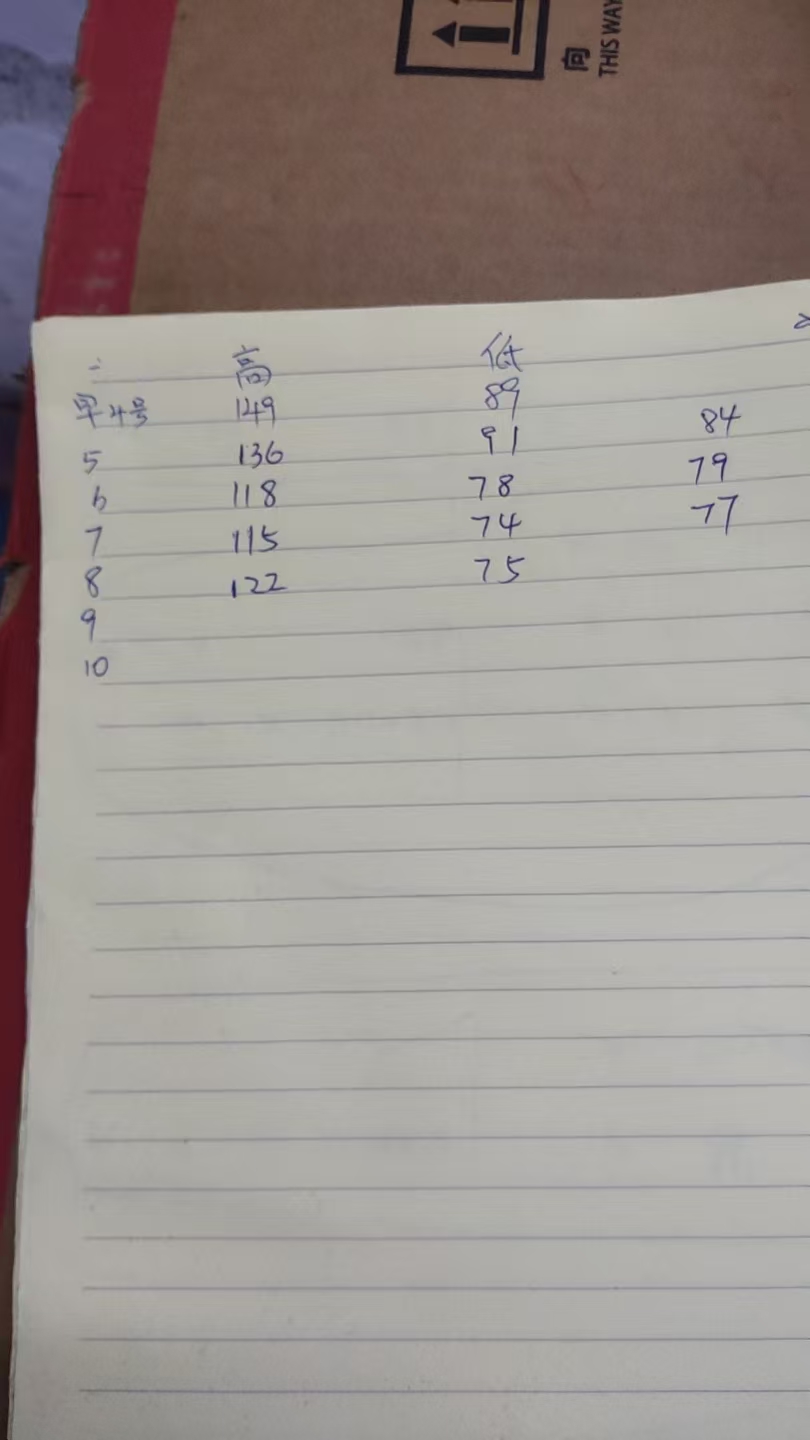 向
THIS WAY
高 低
早4号 149 89
5 136 91 84
6 118 78 79
7 115 74 77
8 122 75
9
10